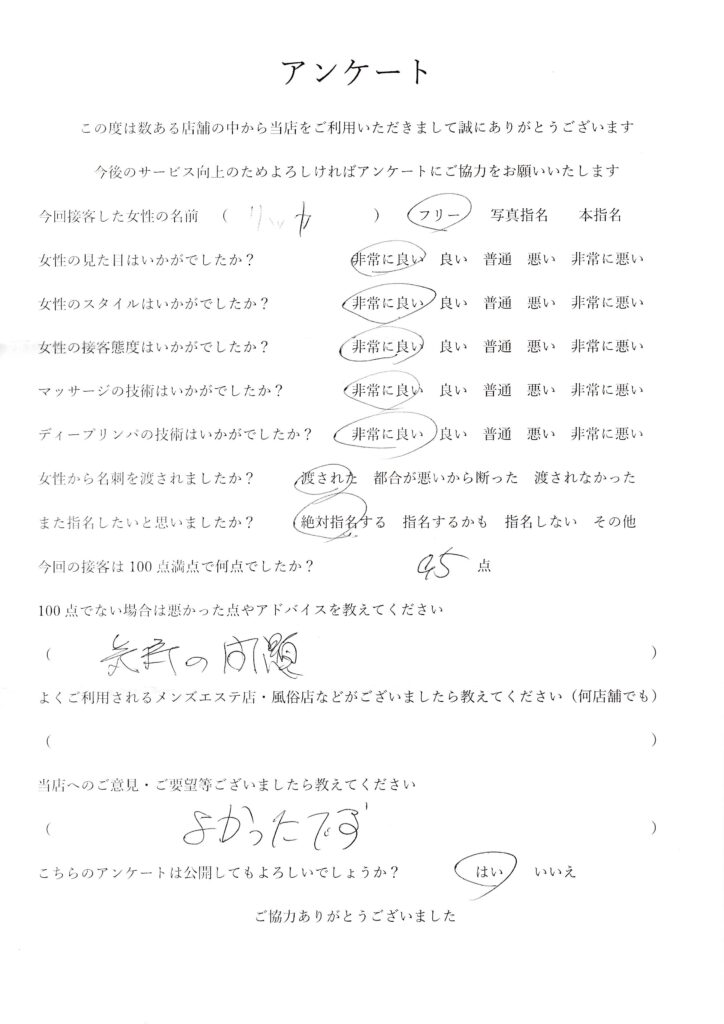 アンケート
この度は数ある店舗の中から当店をご利用いただきまして誠にありがとうございます
今後のサービス向上のためよろしければアンケートにご協力をお願いいたします
今回接客した女性の名前 ( リッカ ) フリー 写真指名 本指名
女性の見た目はいかがでしたか? 非常に良い 良い 普通 悪い 非常に悪い
女性のスタイルはいかがでしたか? 非常に良い 良い 普通 悪い 非常に悪い
女性の接客態度はいかがでしたか? 非常に良い 良い 普通 悪い 非常に悪い
マッサージの技術はいかがでしたか? 非常に良い 良い 普通 悪い 非常に悪い
ディープリンパの技術はいかがでしたか? 非常に良い 良い 普通 悪い 非常に悪い
女性から名刺を渡されましたか? 渡された 都合が悪いから断った 渡されなかった
また指名したいと思いましたか? 絶対指名する 指名するかも 指名しない その他
今回の接客は100点満点で何点でしたか? 95 点
100点でない場合は悪かった点やアドバイスを教えてください
( の問題 )
よくご利用されるメンズエステ店・風俗店などがございましたら教えてください(何店舗でも)
( )
当店へのご意見・ご要望等ございましたら教えてください
( よかったです )
こちらのアンケートは公開してもよろしいでしょうか? はい いいえ
ご協力ありがとうございました